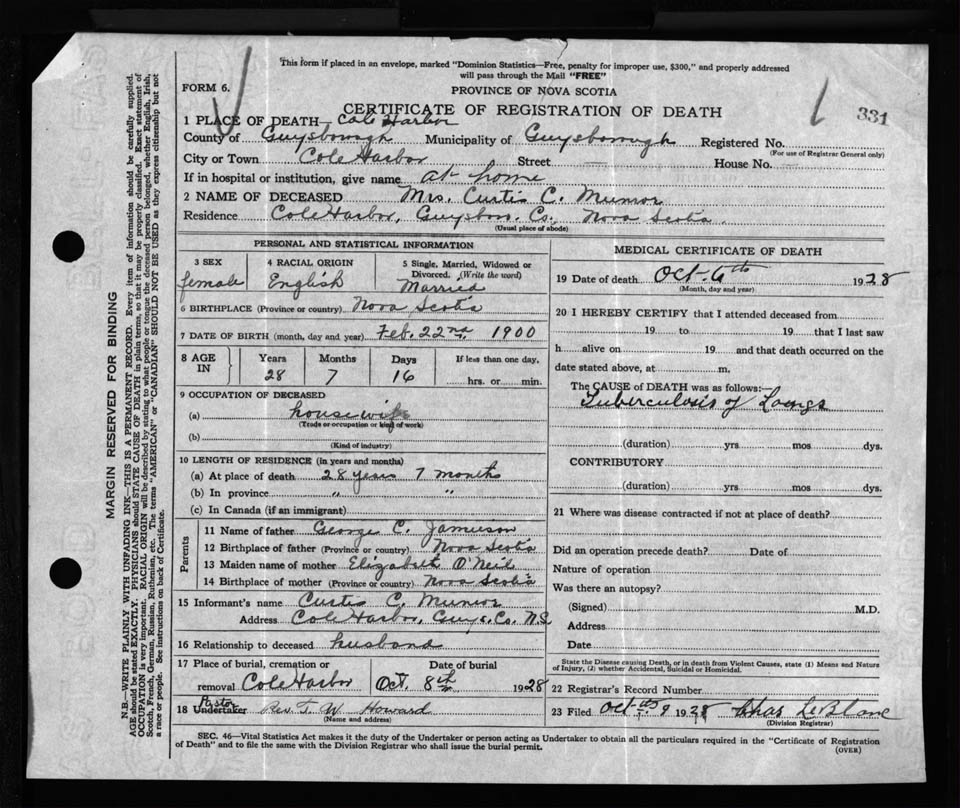 This form if placed in an envelope, marked "Dominion Statistics—Free, penalty for improper use, $300," and properly addressed
will pass through the Mail "FREE"
FORM 6.
PROVINCE OF NOVA SCOTIA
CERTIFICATE OF REGISTRATION OF DEATH
331
1 PLACE OF DEATH Cole Harbor
County of Guysborough Municipality of Guysborough Registered No.
(For use of Registrar General only)
City or Town Cole Harbor Street House No.
If in hospital or institution, give name at home
2 NAME OF DECEASED Mrs. Curtis C. Munroe
Residence Cole Harbor, Guysboro. Co., Nova Scotia
(Usual place of abode)
PERSONAL AND STATISTICAL INFORMATION
3 SEX 4 RACIAL ORIGIN 5 Single, Married, Widowed or
Divorced. (Write the word)
female English Married
6 BIRTHPLACE (Province or country) Nova Scotia
7 DATE OF BIRTH (month, day and year) Feb. 22nd 1900
8 AGE IN Years Months Days If less than one day,
28 7 16 hrs. or min.
9 OCCUPATION OF DECEASED
(a) housewife
(Trade or occupation or kind of work)
(b)
(Kind of industry)
10 LENGTH OF RESIDENCE (in years and months)
(a) At place of death 28 years 7 months
(b) In province " "
(c) In Canada (if an immigrant)
Parents
11 Name of father George C. Jamieson
12 Birthplace of father (Province or country) Nova Scotia
13 Maiden name of mother Elizabeth O'Neil
14 Birthplace of mother (Province or country) Nova Scotia
15 Informant's name Curtis C. Munroe
Address Cole Harbor, Guys. Co. N.S
16 Relationship to deceased husband
17 Place of burial, cremation or Date of burial
removal Cole Harbor Oct. 8th 1928
Pastor
18 Undertaker Rev. T. W. Howard
(Name and address)
MEDICAL CERTIFICATE OF DEATH
19 Date of death Oct. 6th 1928
(Month, day and year)
20 I HEREBY CERTIFY that I attended deceased from
19 to 19 that I last saw
h alive on 19 and that death occurred on the
date stated above, at m.
The CAUSE of DEATH was as follows:—
Tuberculosis of Lungs
(duration) yrs mos dys.
CONTRIBUTORY
(duration) yrs mos dys.
21 Where was disease contracted if not at place of death?
Did an operation precede death? Date of
Nature of operation
Was there an autopsy?
(Signed) M.D.
Address
Date
State the Disease causing Death, or in death from Violent Causes, state (1) Means and Nature
of Injury, (2) whether Accidental, Suicidal or Homicidal.
22 Registrar's Record Number
23 Filed Oct. 9 1928 Chas LeBlanc
(Division Registrar)
SEC. 46—Vital Statistics Act makes it the duty of the Undertaker or person acting as Undertaker to obtain all the particulars required in the "Certificate of Registration
of Death" and to file the same with the Division Registrar who shall issue the burial permit.
(OVER)
MARGIN RESERVED FOR BINDING
N.B.—WRITE PLAINLY WITH UNFADING INK—THIS IS A PERMANENT RECORD. Every item of information should be carefully supplied.
AGE should be stated EXACTLY. PHYSICIANS should STATE CAUSE OF DEATH in plain terms, so that it may be properly classified. Exact statement of
OCCUPATION is very important. RACIAL ORIGIN will be described by stating to what people or tongue the deceased person belonged, whether English, Irish,
Scotch, French, German, Russian, Ruthenian, etc. The terms "AMERICAN" or "CANADIAN" SHOULD NOT BE USED as they express citizenship but not
a race or people. See instructions on back of Certificate.